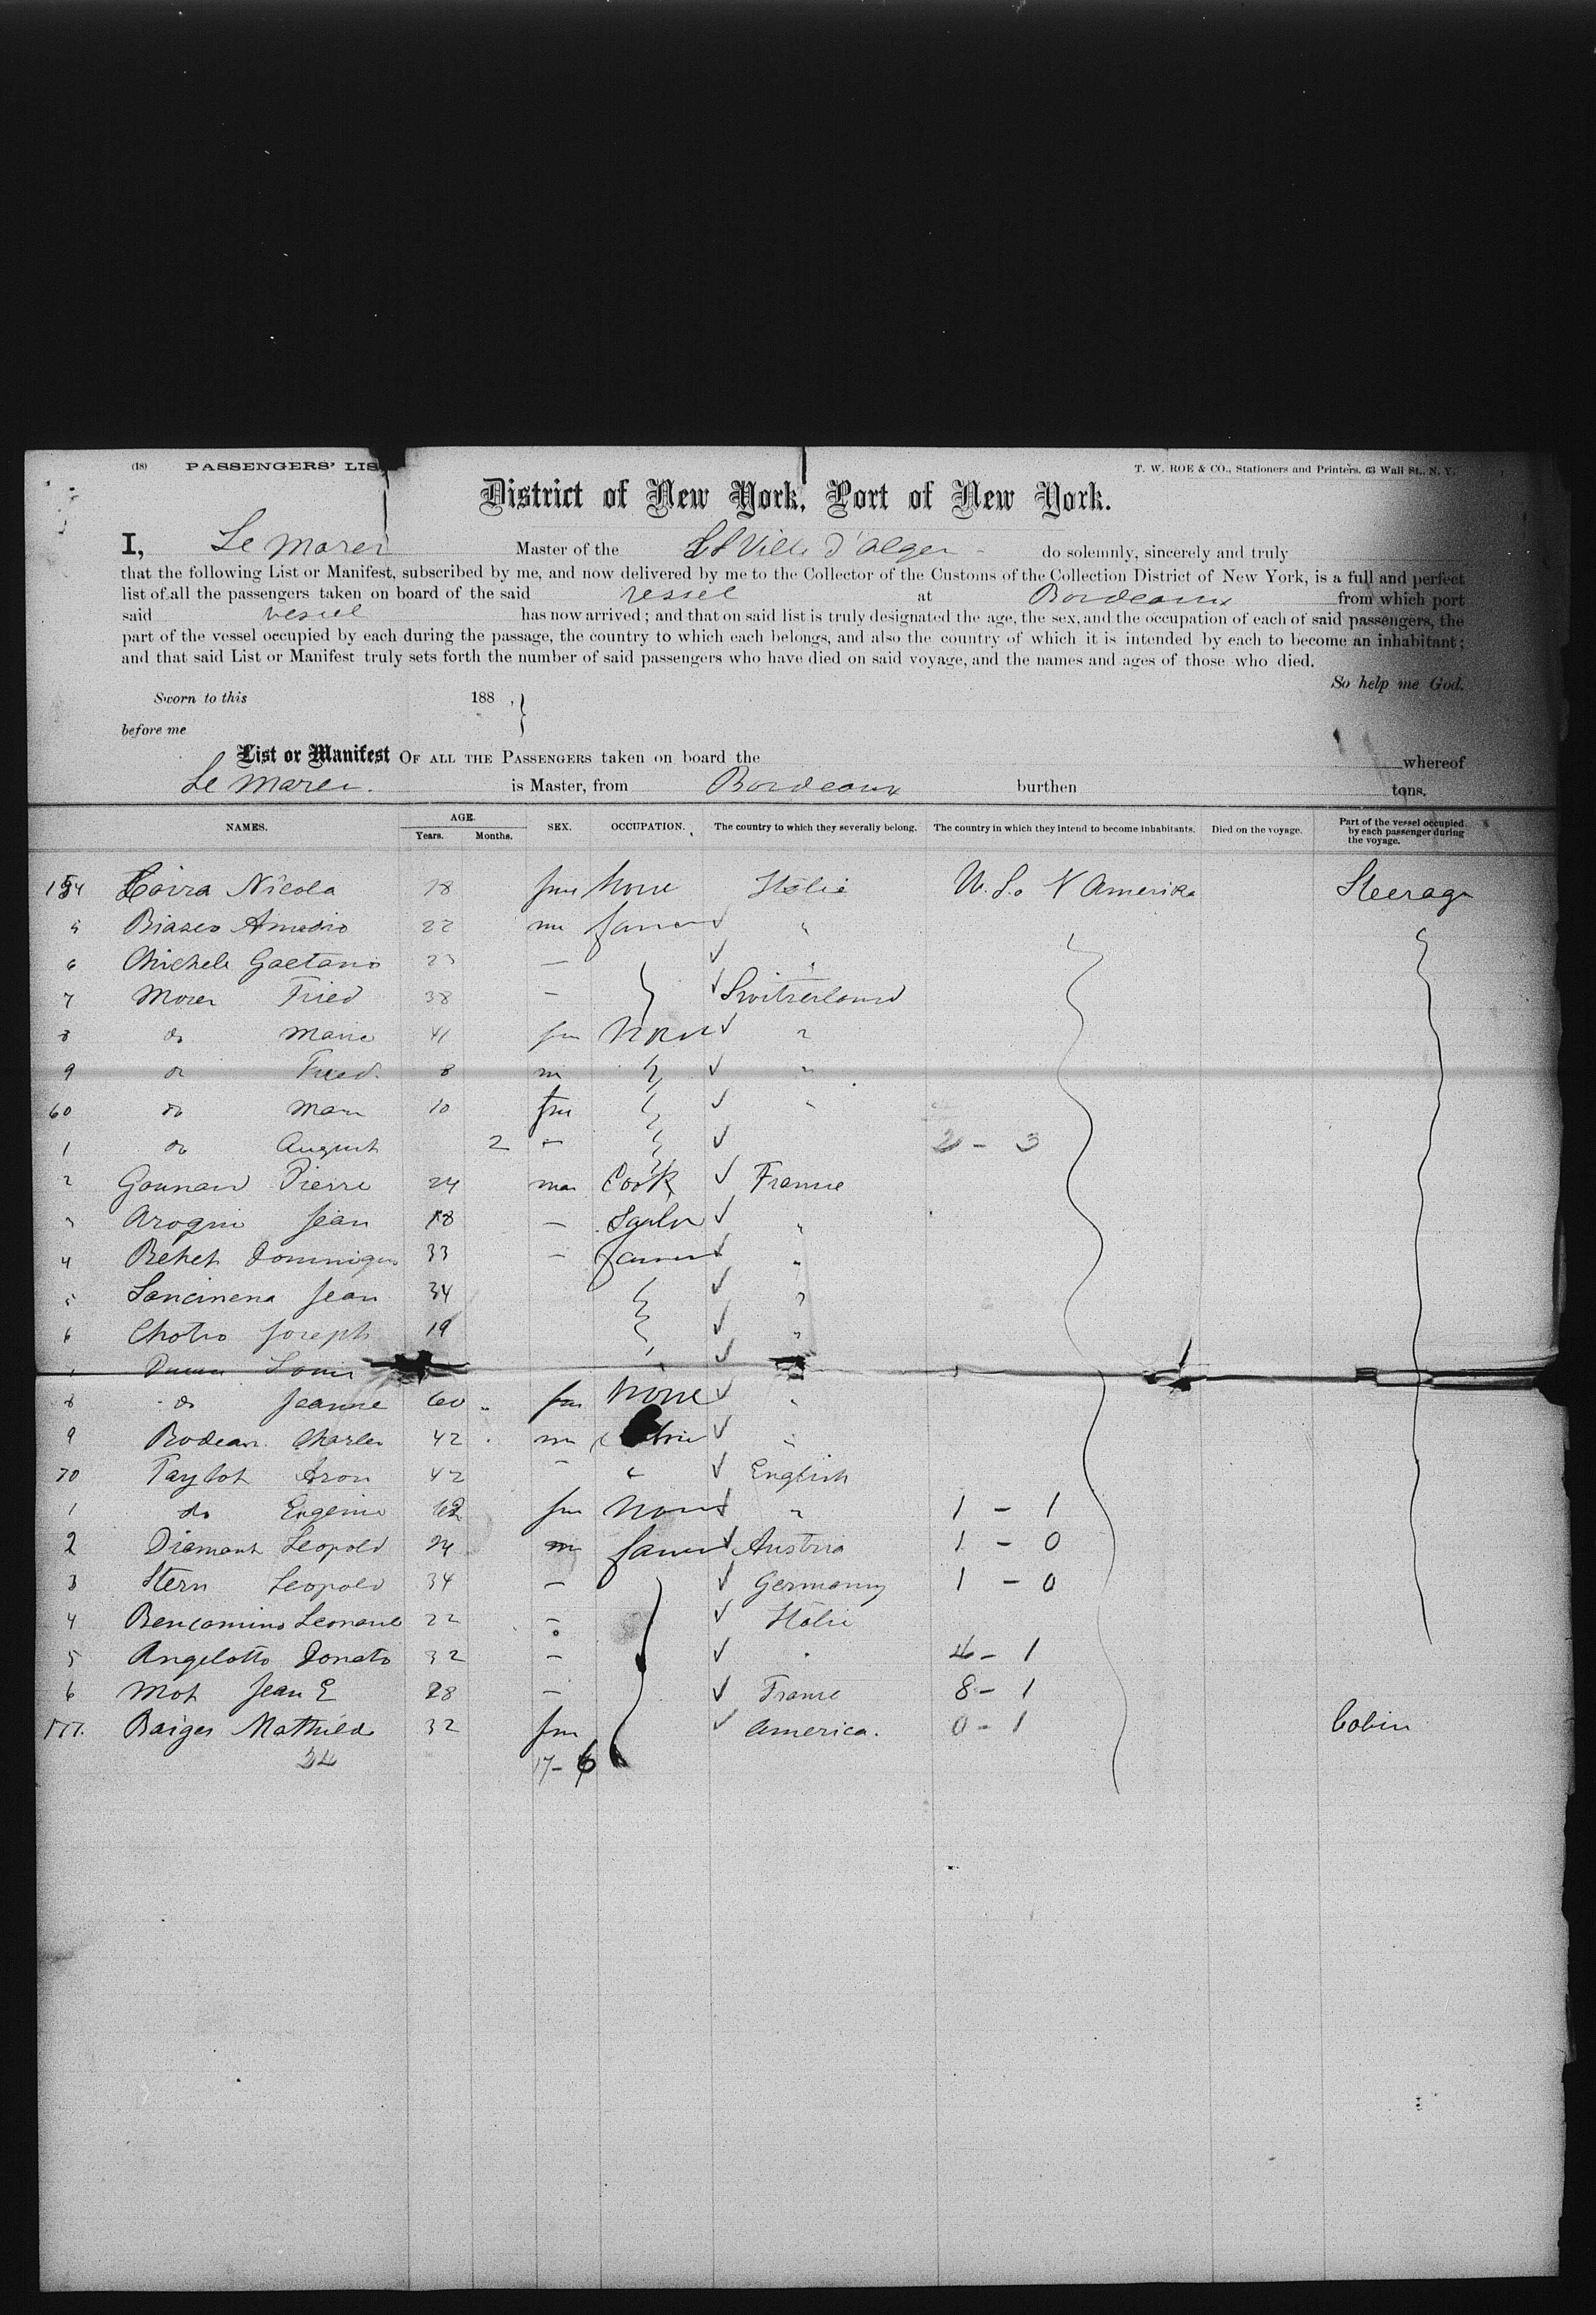 (18) PASSENGERS' LIS T. W. ROE & CO., Stationers and Printers, 63 Wall St., N. Y.
District of New York, Port of New York.
I, Le Marer Master of the SS Ville d'Alger do solemnly, sincerely and truly
that the following List or Manifest, subscribed by me, and now delivered by me to the Collector of the Customs of the Collection District of New York, is a full and perfect
list of all the passengers taken on board of the said vessel at Bordeaux from which port
said vessel has now arrived; and that on said list is truly designated the age, the sex, and the occupation of each of said passengers, the
part of the vessel occupied by each during the passage, the country to which each belongs, and also the country of which it is intended by each to become an inhabitant;
and that said List or Manifest truly sets forth the number of said passengers who have died on said voyage, and the names and ages of those who died.
So help me God.
Sworn to this 188 , }
before me
List or Manifest OF ALL THE PASSENGERS taken on board the whereof
Le Marer. is Master, from Bordeaux burthen tons.
NAMES. AGE. Years. Months. SEX. OCCUPATION. The country to which they severally belong. The country in which they intend to become inhabitants. Died on the voyage. Part of the vessel occupied by each passenger during the voyage.
154 Nicola 18 fm None Italie U. S. o N Amerika Steerage
5 Biasco Amadio 22 m farmer ✓ "
6 Michele Gaetano 23 — ✓ "
7 Moser Fried 38 — ✓ Switzerland
8 do Marie 41 fm None ✓ "
9 do Fried. 8 m ✓ "
60 do Marie 10 fm ✓ "
1 do August 2 — ✓ 2 - 3
2 Pierre 24 m Cook ✓ France
3 Jean 18 — ✓ "
4 Behet Dominique 33 — farmer ✓ "
5 Lancinena Jean 34 ✓ "
6 Chotro Joseph 19 ✓ "
Louis ✓
8 do Jeanne 60 fm None ✓ "
9 Bodean Charles 42 m ✓ "
70 Taylot Aron 42 — " ✓ English
1 do Eugenie fm None ✓ " 1 - 1
2 Diamant Leopold 24 m farmer ✓ Austria 1 - 0
3 Stern Leopold 34 — ✓ Germany 1 - 0
4 22 — ✓ Italie
5 Angelotto Donato 32 — ✓ " 4 - 1
6 Mot Jean E 28 — ✓ France 8 - 1
177. Baiges Mathilde 32 fm ✓ America. 0 - 1 Cabin
24 17 - 6